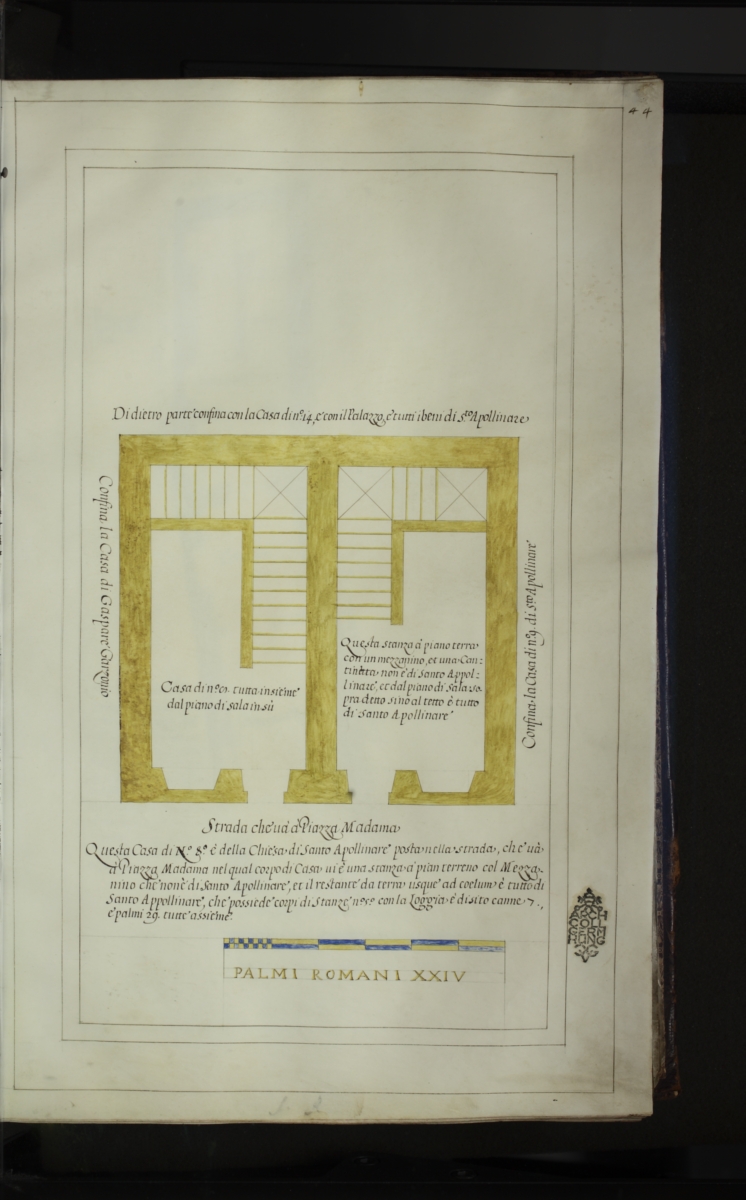 44
Di dietro parte confina con la Casa di nº 14, e con il Palazzo, e tutti i beni di Sto Apollinare
Confina la Casa di Gaspare Garzonio
Confina la Casa di nº 9. di Sto Apollinare
Questa stanza à piano terra
con un mezzanino, et una Can-
tinetta non è di Santo Appol-
linare, et dal piano di sala so-
pra detto sino al tetto è tutto
di Santo Apollinare
Casa di nº tutta insieme
dal piano di sala in sù
Strada che và à Piazza Madama
Questa Casa di Nº 8º è della Chiesa di Santo Apollinare posta nella strada, che và
à Piazza Madama nel qual corpo di Casa vi è una stanza à pian terreno col Mezza-
nino che non è di Santo Apollinare, et il restante da terra usque ad coelum è tutto di
Santo Appollinare, che possiede corpi di Stanze nº con la Loggia è di sito canne 7.,
e palmi 29. tutte assieme.
PALMI ROMANI XXIV